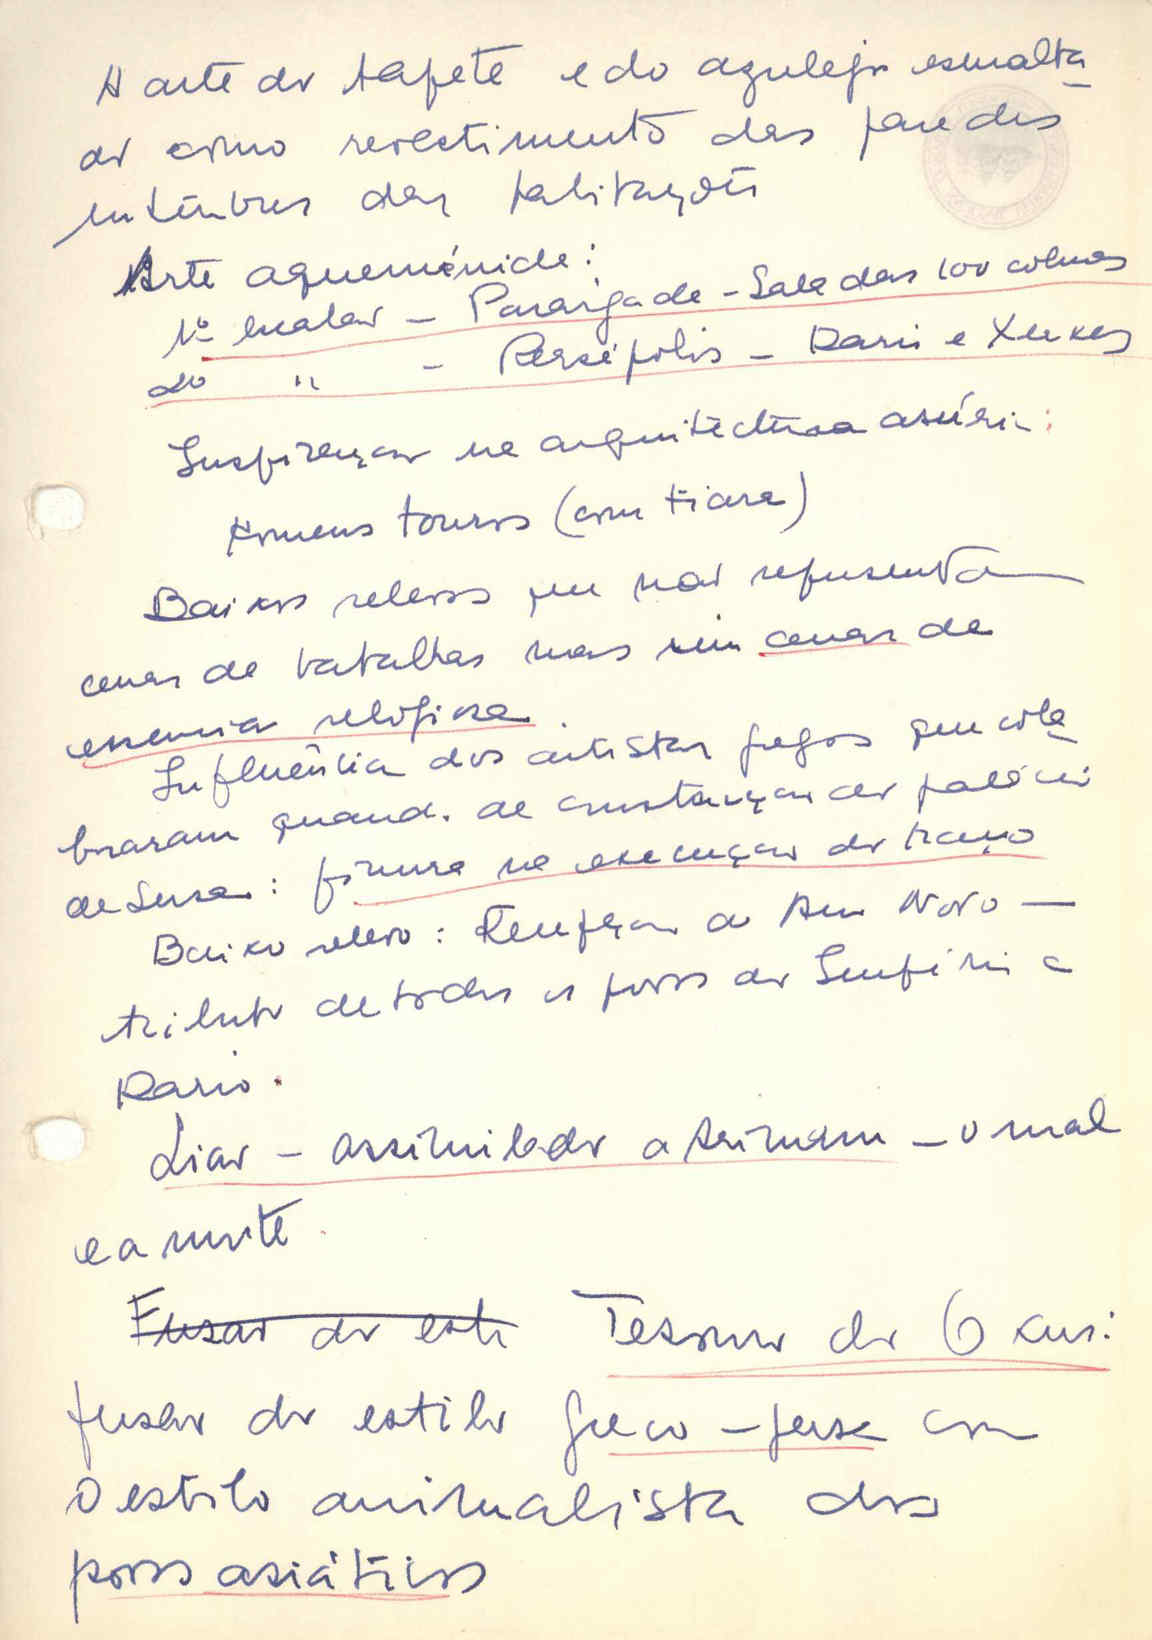 A arte do tapete e do azulejo esmalta
do como revestimento das paredes
interiores das habitações
Arte aqueménide:
1º escalão – Pasárgada – Sala das 100 colunas
2º " – Persépolis – Dario e Xerxes
Inspiração na arquitectura assíria:
Homens touros (com tiara)
Baixos relevos que não representam
cenas de batalhas mas sim cenas de
essencia religiosa.
Influência dos artistas gregos que cola
boraram quand. da construção do palácio
de Susa: finura na execução do traço
Baixo relevo: Recepção do Ano Novo –
tributo de todos os povos do Império a
Dario.
Lião – assimilado a Ariman – o mal
e a morte.
Fusão do esti Tesouro do Oxus:
fusão do estilo greco – persa com
o estilo animalista dos
povos asiáticos